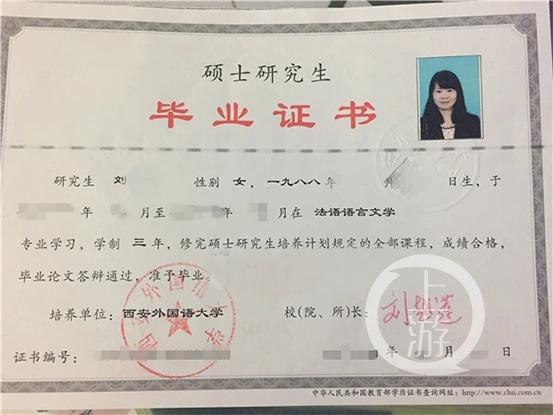 硕士研究生
毕业证书
研究生 刘 性别 女，一九八八年 月 日生，于
年 月至 年 月在 法语语言文学
专业学习，学制 三 年，修完硕士研究生培养计划规定的全部课程，成绩合格，
毕业论文答辩通过，准予毕业。
培养单位：西安外国语大学 校(院、所)长：
西安外国语大学
上游
证书编号： 年 月 日
中华人民共和国教育部学历证书查询网址：http://www.chsi.com.cn